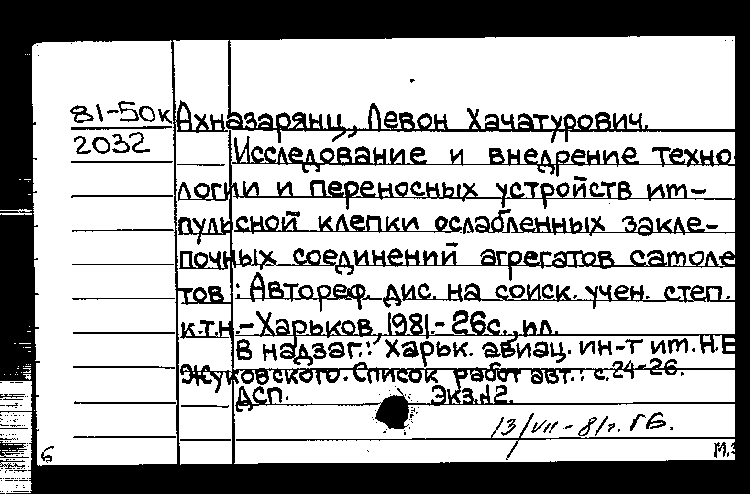 81-50к Ахназарянц, Левон Хачатурович.
2032 Исследование и внедрение техно
логии и переносных устройств им-
пульсной клепки ослабленных закле-
почных соединений агрегатов самоле
тов: Автореф. дис. на соиск. учен. степ.
к.т.н. - Харьков, 1981. - 26с., ил.
В надзаг.: Харьк. авиац. ин-т им. Н.Е
Жуковского. Список работ авт.: с. 24-26.
ДСП. Экз.№2.
13/VII - 81г. ГБ.
б М.З